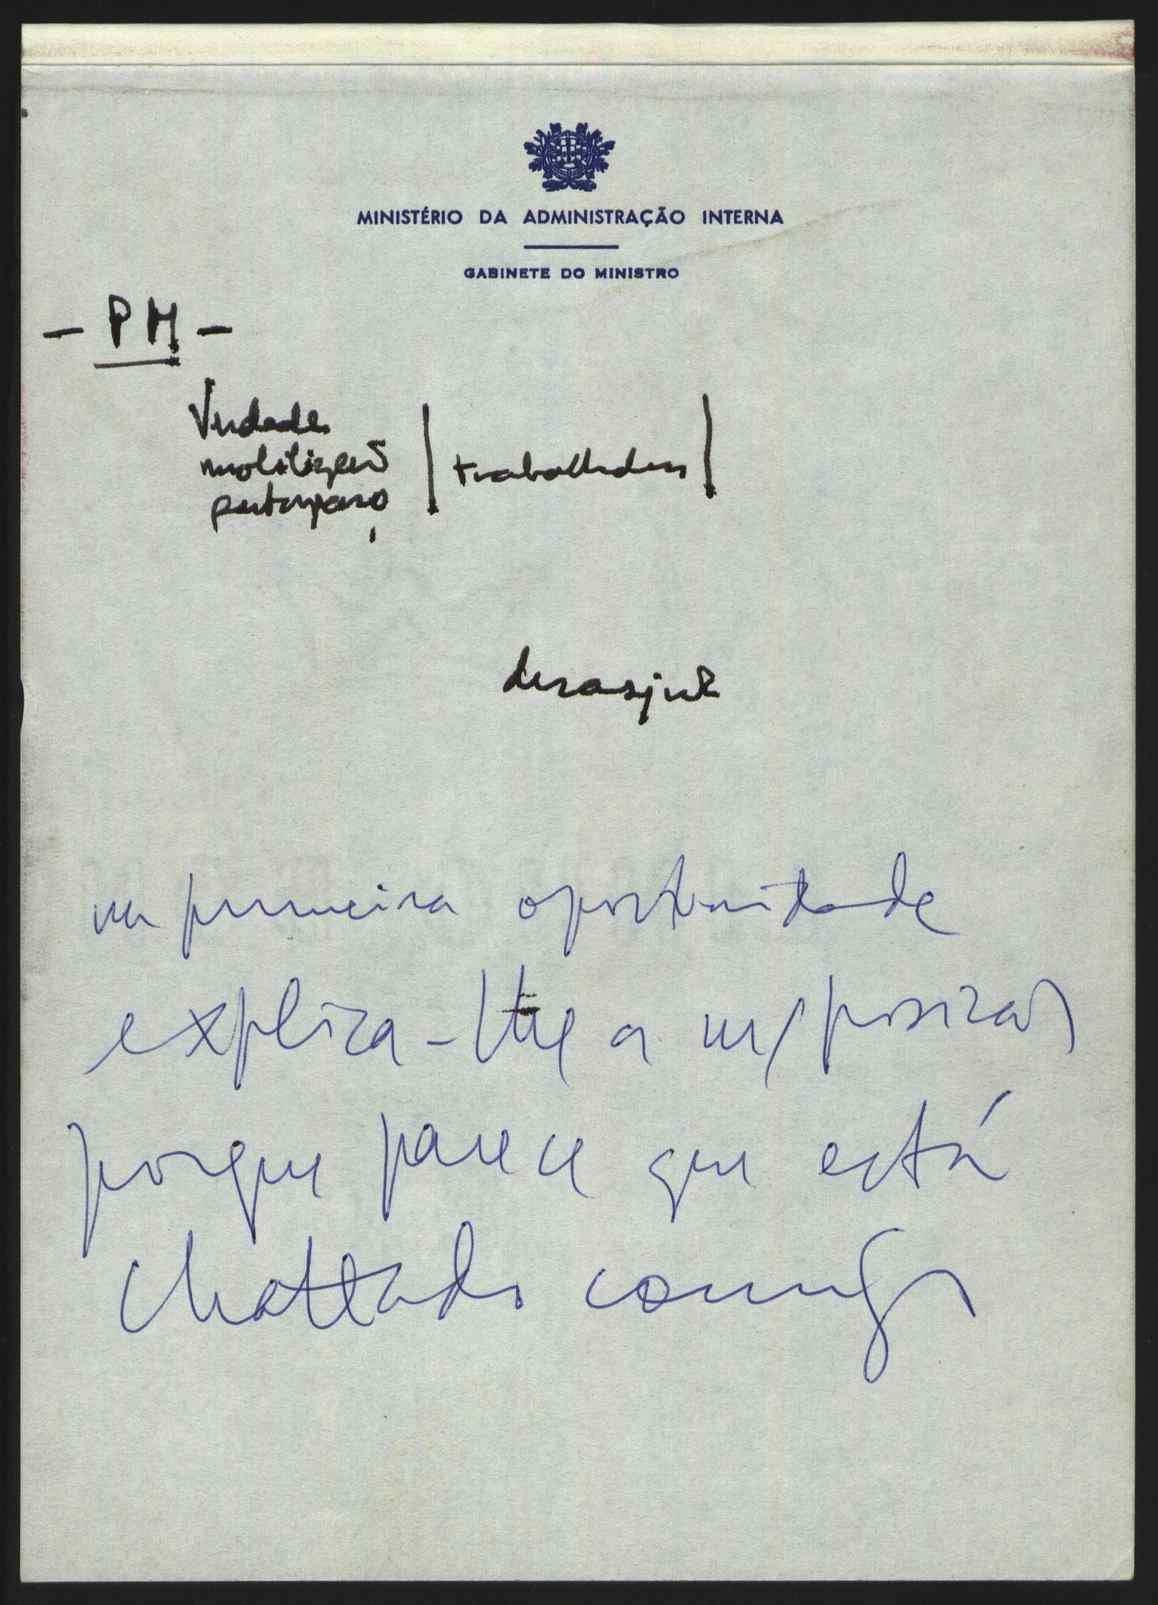 MINISTÉRIO DA ADMINISTRAÇÃO INTERNA
GABINETE DO MINISTRO
- PM -
Verdade
mobilização
participação
trabalhadores
na primeira oportunidade
explica-lhe a m/ posição
porque parece que está
chatteado comigo